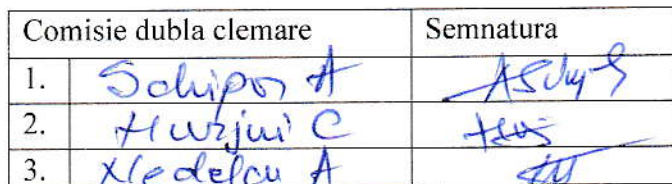 Comisie dubla clemare Semnatura
1. Schipor A
2. Hurjui C
3. Nedelcu A